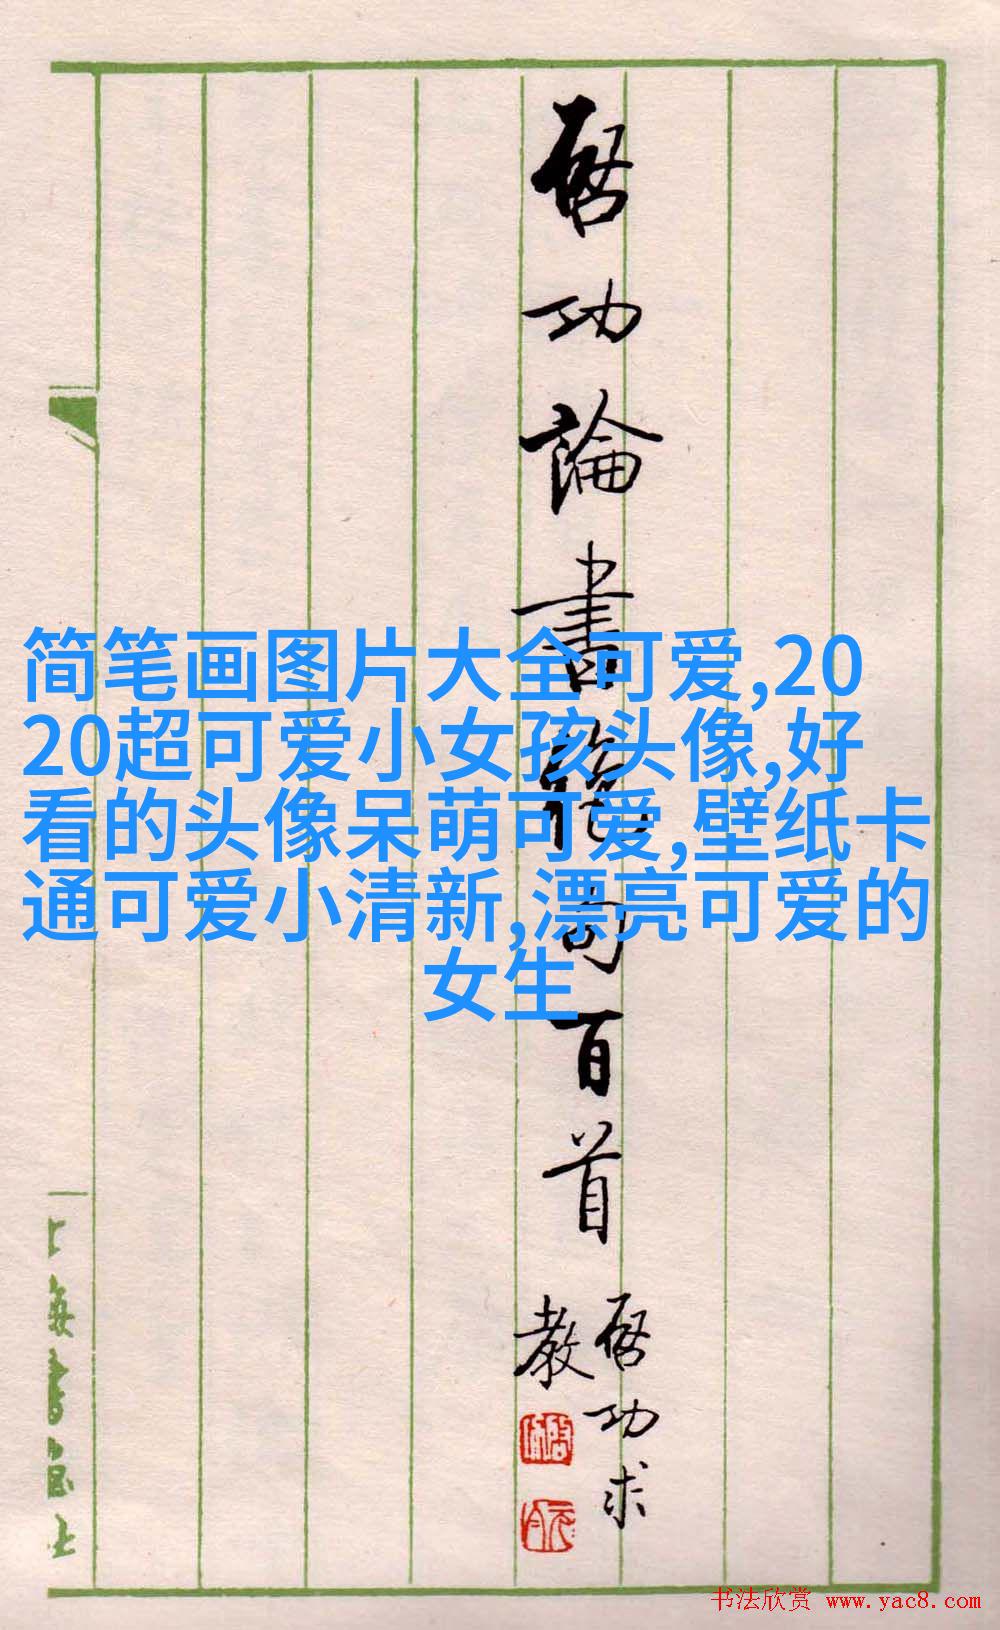 启功論書絶句百首
启功求
教
简笔画图片大全可爱,20
20超可爱小女孩头像,好
看的头像呆萌可爱,壁纸卡
通可爱小清新,漂亮可爱的
女生
上海書畫社
书法欣赏 www.yac8.com